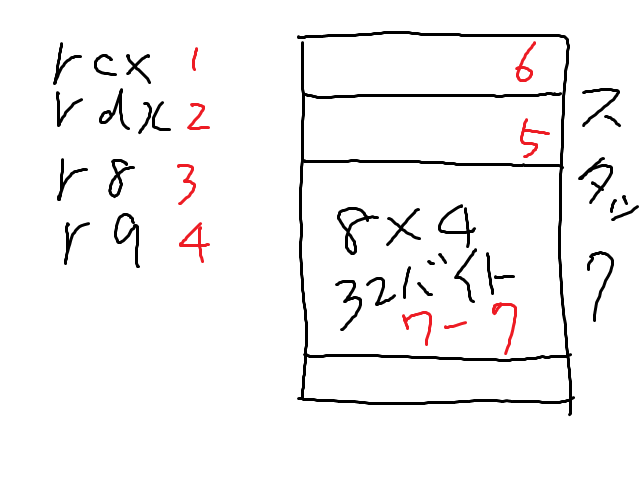 rcx 1
rdx 2
r8 3
r9 4
6
5
8×4
32バイト
ワーク
スタック